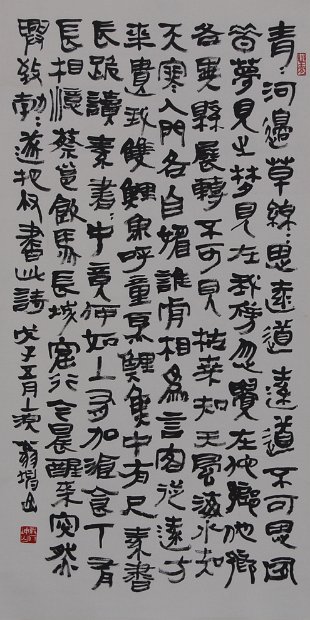 青々河邊草綿々思遠道遠道不可思夙
昔夢見之夢見在我傍忽覺在他鄉他鄉
各異縣展轉不可見枯桑知天風海水知
天寒入門各自媚誰肯相為言客從遠方
來遺我雙鯉魚呼童烹鯉魚中有尺素書
長跪讀素書々中竟何如上有加飧食下有
長相憶 蔡邕飲馬長城窟行 今晨醒來突然
興致勃々遂把 書此詩 戊子五月上浣 翁